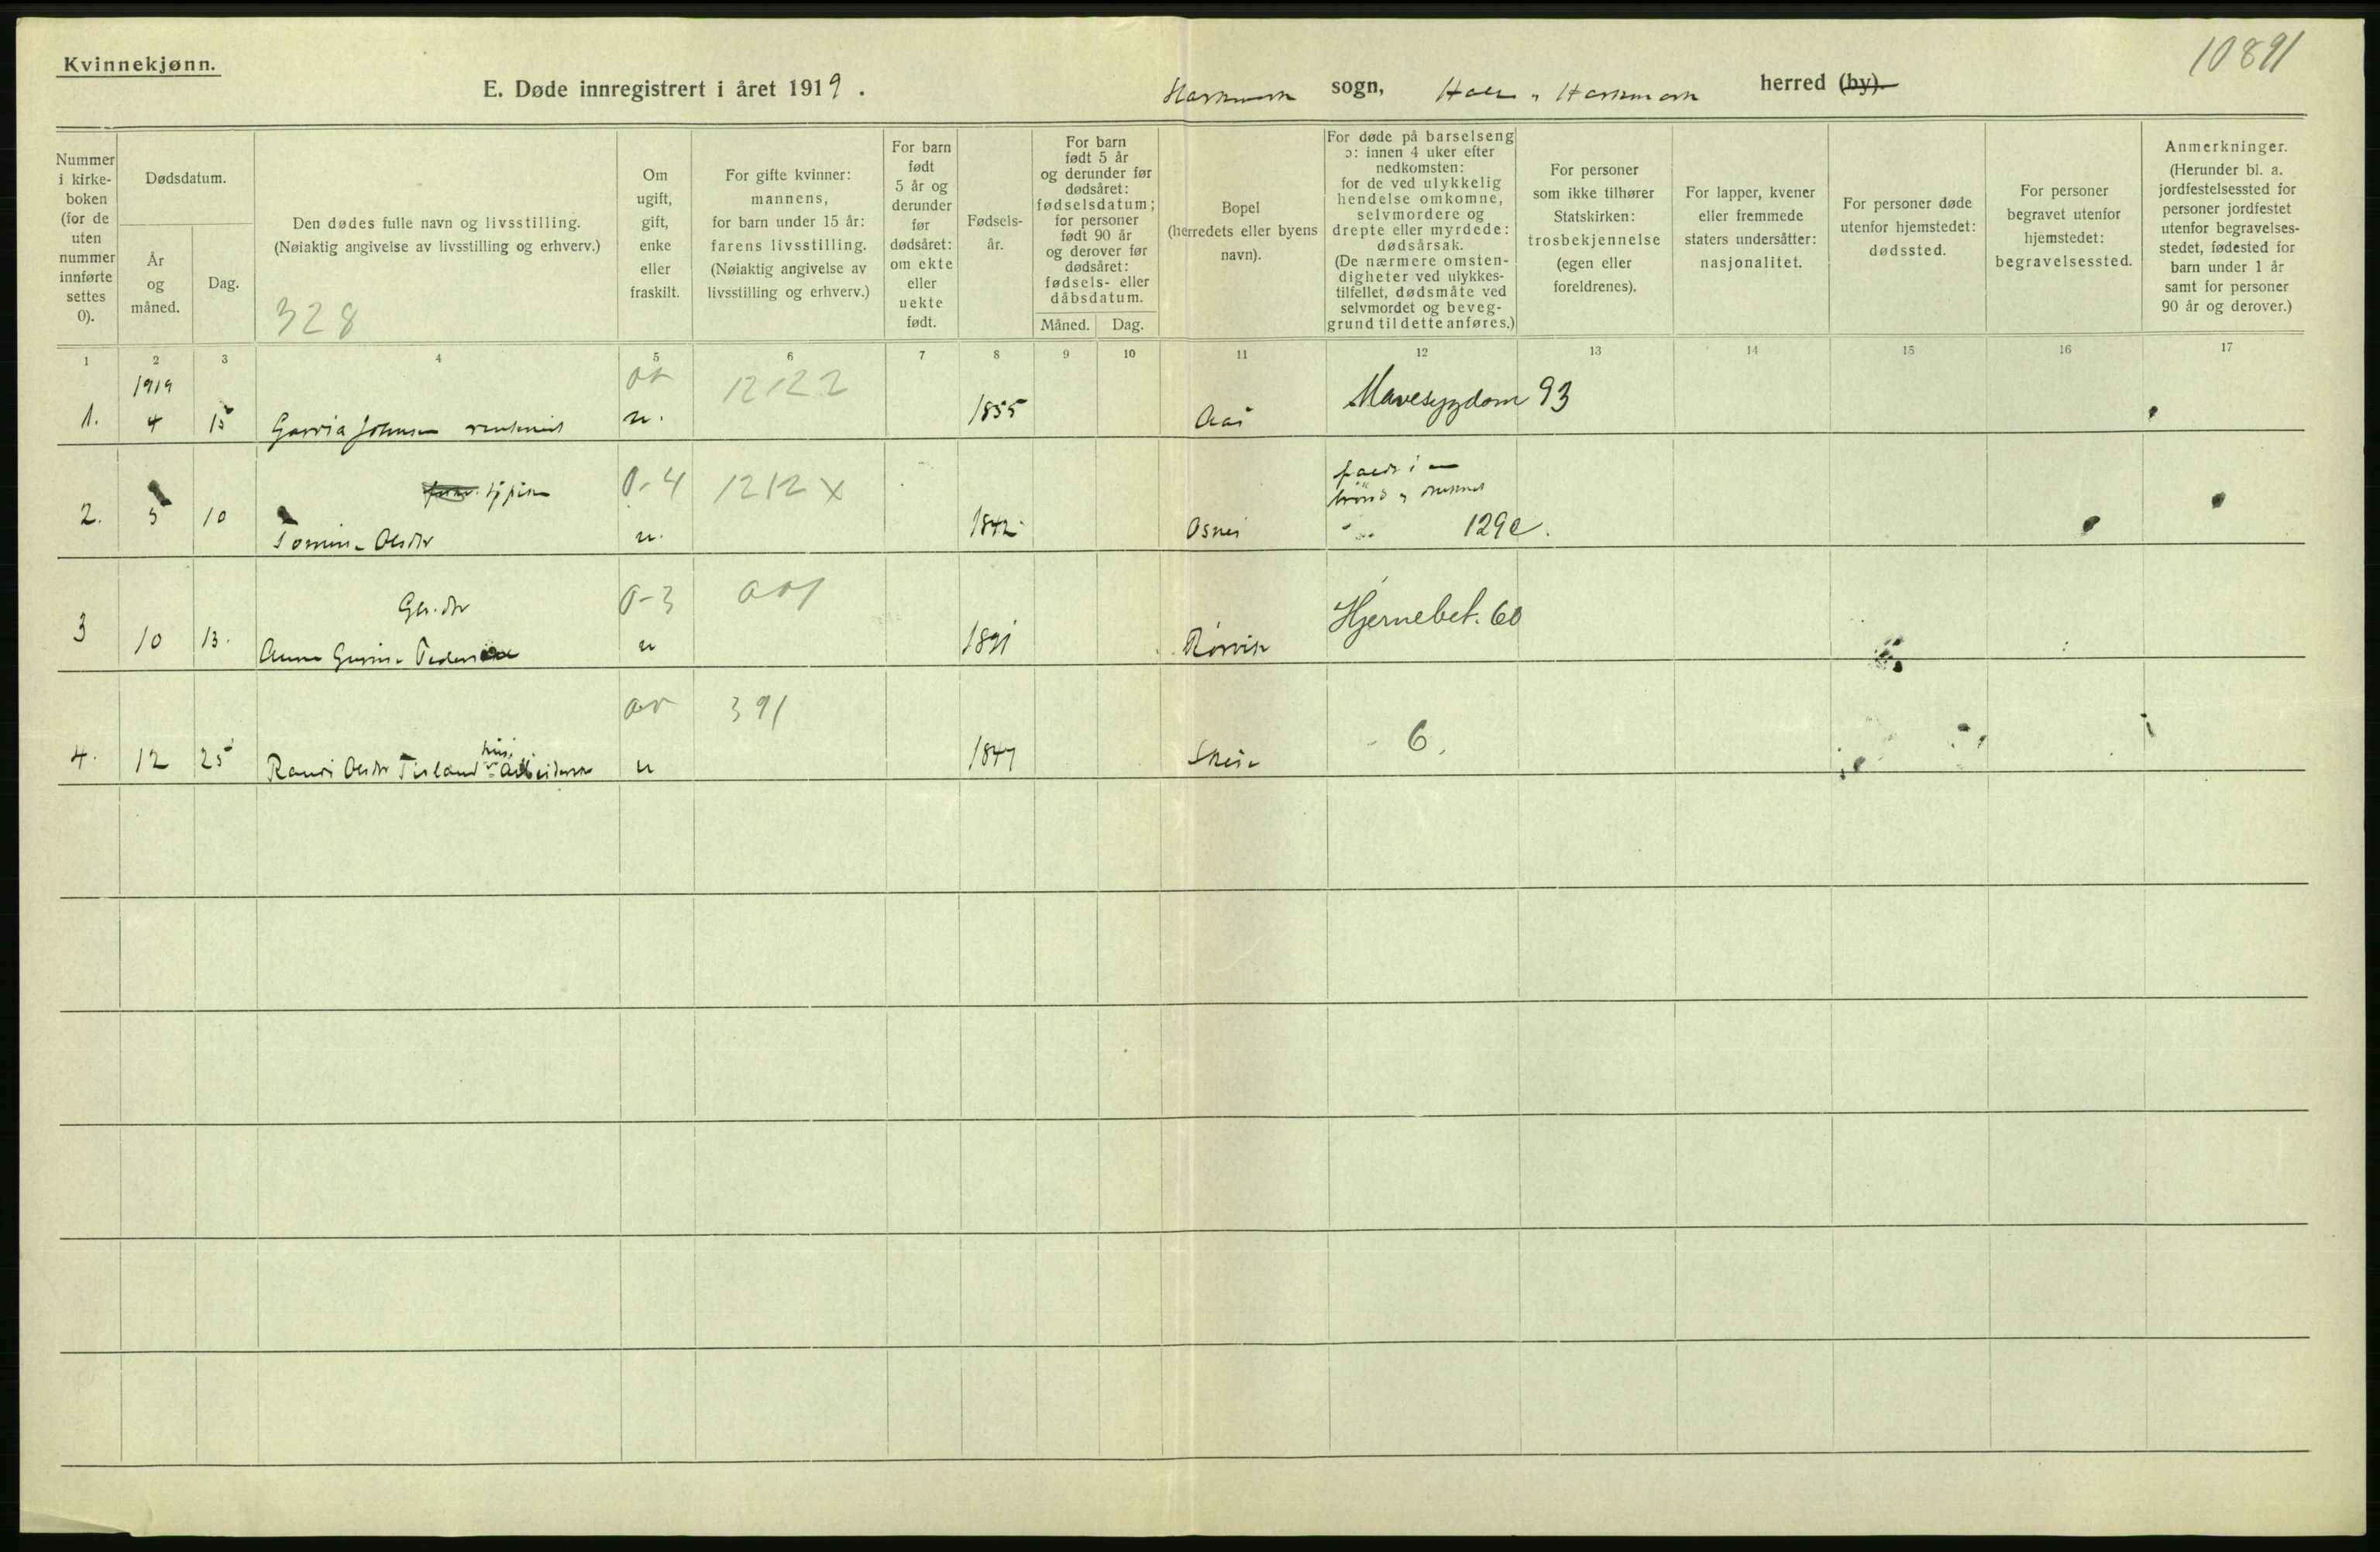 Kvinnekjønn.
10891
E. Døde innregistrert i året 1919. Harkmark sogn, Halse o Harkmark herred (by).
Nummer i kirke- boken (for de uten nummer innførte settes 0).
Dødsdatum.
År og måned.
Dag.
Den dødes fulle navn og livsstilling.
(Nøiaktig angivelse av livsstilling og erhverv.)
328
Om ugift, gift, enke eller fraskilt.
For gifte kvinner: mannens, for barn under 15 år: farens livsstilling. (Nøiaktig angivelse av livsstilling og erhverv.)
For barn født 5 år og derunder før dødsåret: om ekte eller uekte født.
Fødsels- år.
For barn født 5 år og derunder før dødsåret: fødselsdatum; for personer født 90 år og derover før dødsåret: fødsels- eller dåbsdatum.
Måned. Dag.
Bopel (herredets eller byens navn).
For døde på barselseng ɔ: innen 4 uker efter nedkomsten: for de ved ulykkelig hendelse omkomne, selvmordere og drepte eller myrdede: dødsårsak. (De nærmere omsten- digheter ved ulykkes- tilfellet, dødsmåte ved selvmordet og beveg- grund til dette anføres.)
For personer som ikke tilhører Statskirken: trosbekjennelse (egen eller foreldrenes).
For lapper, kvener eller fremmede staters undersåtter: nasjonalitet.
For personer døde utenfor hjemstedet: dødssted.
For personer begravet utenfor hjemstedet: begravelsessted.
Anmerkninger. (Herunder bl. a. jordfestelsessted for personer jordfestet utenfor begravelses- stedet, fødested for barn under 1 år samt for personer 90 år og derover.)
1 2 3 4 5 6 7 8 9 10 11 12 13 14 15 16 17
1919
1212 2
1. 4 15 Johnsen u. 1855 Aas Mavesygdom 93
0-4 1212 x
2. 5 10 Olsdtr u. 1842 Osnes 129c.
Gr.dtr 0-3
3 10 13. Anna Pedersen u 1891 Rørvik Hjernebet. 60
391
4. 12 25 Olsdtr u 1847 6.